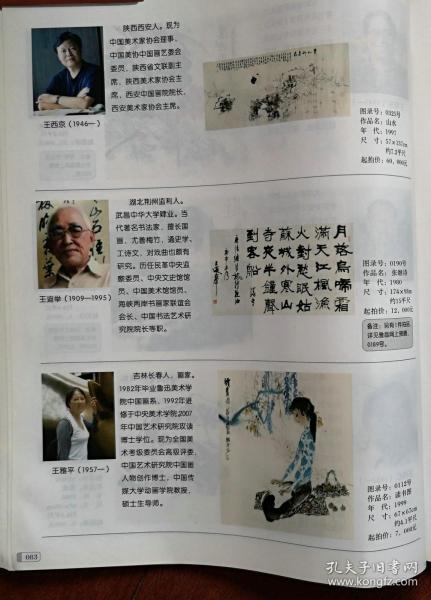 陕西西安人。现为
中国美术家协会理事、
中国美协中国画艺委会
委员、陕西省文联副主
席、陕西美术家协会主
席、西安中国画院院长、
西安美术家协会主席。
王西京（1946—）
图录号：0325号
作品名：山水
年 代：1997
尺 寸：57×237cm
约7.2平尺
起拍价：60,000元
湖北荆州监利人。
武昌中华大学肄业。当
代著名书法家，擅长国
画，尤善梅竹，通史学、
工诗文，对戏曲也颇有
研究。历任民革中央监
察委员、中央文史馆馆
员、中国美术馆馆员、
海峡两岸书画家联谊会
会长、中国书法艺术研
究院院长等职。
王遐举（1909—1995）
月落乌啼霜
满天江枫渔
火对愁眠姑
苏城外寒山
寺夜半钟声
到客船
图录号：0190号
作品名：张继诗
年 代：1980
尺 寸：174×88cm
约15平尺
起拍价：12,000元
备注：另有1件拍品
详见雅昌网上预展，
0189号。
吉林长春人，画家。
1982年毕业鲁迅美术学
院中国画系，1992年进
修于中央美术学院,2007
年中国艺术研究院攻读
博士学位。现为全国美
术考级委员会高级评委、
中国艺术研究院中国画
人物创作博士，中国传
媒大学动画学院教授、
硕士生导师。
王雅平（1957—）
图录号：0112号
作品名：读书图
年 代：1999
尺 寸：67×67cm
约4.1平尺
起拍价：7,000元
083
孔夫子旧书网
www.kongfz.com